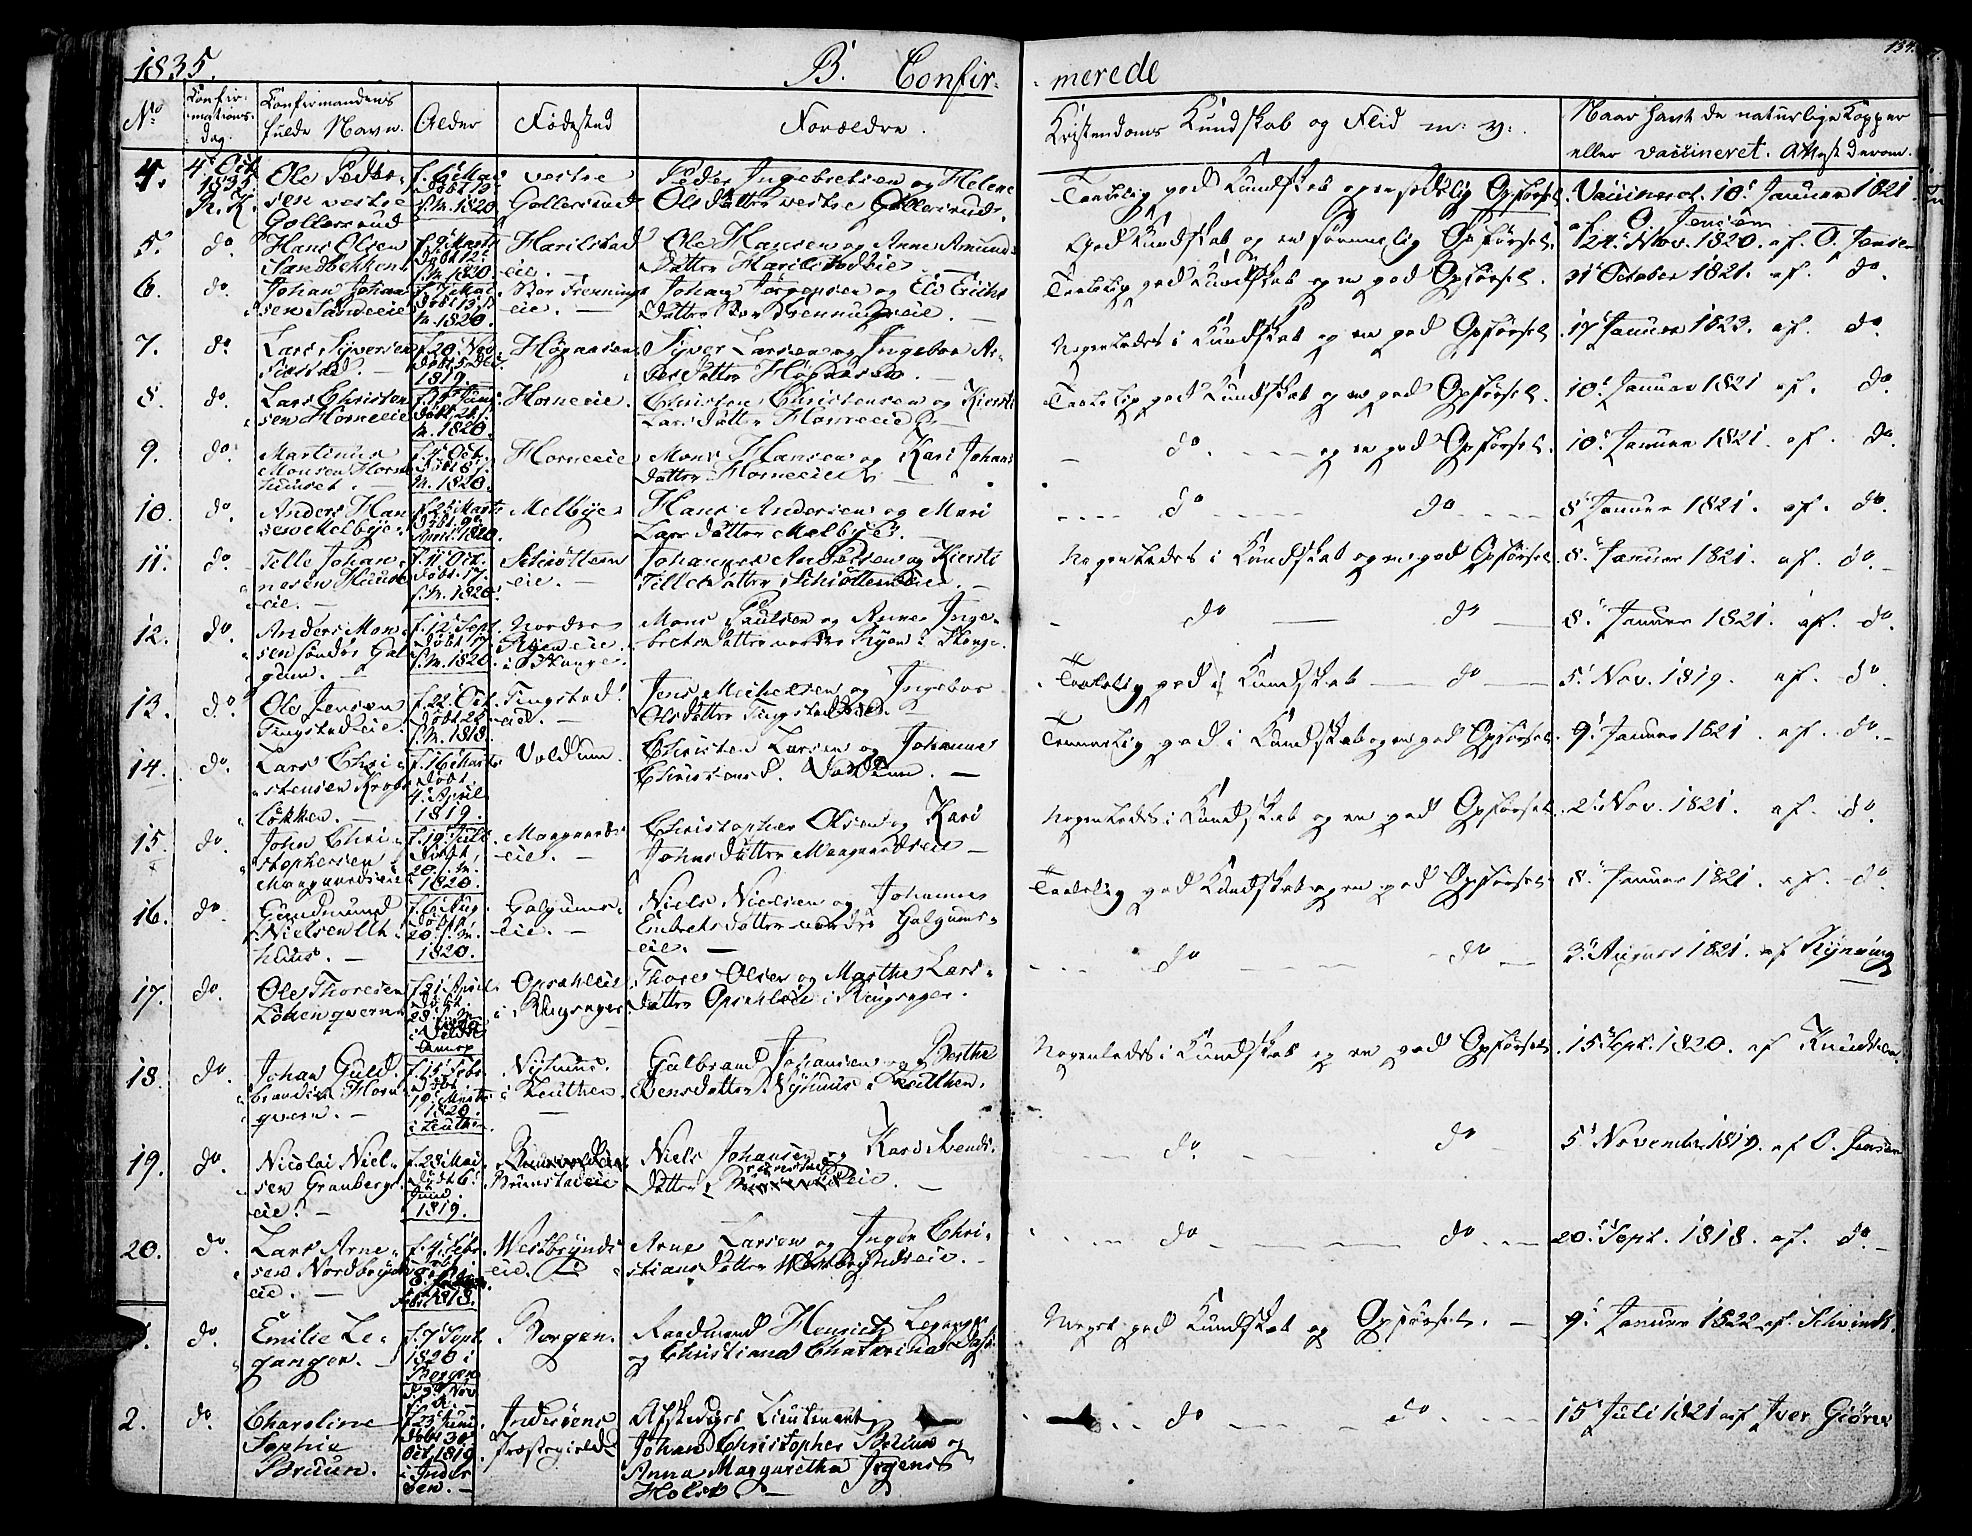 1835.
B. Confir-
merede
134.
No
Confir-
mations-
dag.
Confirmandens
fulde Navn.
Alder
Fødested
Forældre.
Kristendoms Kundskab og Flid m: v:
Naar havt de naturlige Kopper
eller vaccineret. Attest derom.
4.
4 Oct.
1835
Ole Peder-
sen vestre
Gollersrud
f. 6 Mai
døbt
f. M. 1820.
vestre
Gollersrud
Peder Ingebretsen og Helene
Olsdatter vestre Gollersrud.
Taalelig god Kundskab og en sædelig Opførsel.
Vaccineret. 10 Januar 1821
af O. Jensen
5.
do
Hans Olsen
Sandbekken
døbt 12
f. M. 1820.
Harilstad
eie.
Ole Hansen og Anne Amunds
datter Harilstadeie
God Kundskab og en sømmelig Opførsel.
24. Nov. 1820. af O. Jensen
6.
do.
Johan Johan
sen Sandeeie
f. 7 Mai
døbt
M. 1820.
eie.
Johan Jørgensen og Else Erichs
datter
Taalelig god Kundskab og en god Opførsel.
31 October 1821. af. do.
7.
do.
Lars Syversen
f. 20. Nov.
døbt 5. Dec.
1819.
Høgaasen
Syver Larsen og Ingebor
datter Høgaasen
Nogenledes i Kundskab og en god Opførsel.
17 Januar 1823. af. do.
8.
do.
Lars Christen
sen Horneeie
døbt 24.
M. 1820.
Horneeie.
Christen Christensen og Kiersti
Larsdatter Horneeie
Taalelig god Kundskab og en god Opførsel.
10 Januar 1821 af. do.
9.
do.
Martinus
Monsen Horne
huuset.
f. 4 Oct.
døbt 8
M. 1820.
Horneeie
Mons Hansen og Kari Johans
datter Horneeie
do. og en god Opførsel.
10 Januar 1821. af. do.
10.
do.
Anders Han
sen Melbye.
f. 21 Marts
døbt. 9
April. 1820.
Melbye
Hans Andersen og Mari
Larsdatter Melbye.
do do
8 Januar 1821. af. do.
11.
do.
Telle Johan-
nesen Huuse
eie.
f. 11. Oct.
døbt. 17.
f. M. 1820.
Schiøtten
eie.
Johannes Andersen og Kiersti
Telledatter Schiøtteneie.
Nogenledes i Kundskab og en god Opførsel.
8 Januar 1821. af. do.
12.
do.
Anders Mon
sen søndre Gal
gum.
f. 12 Sept.
døbt 17
f. M. 1820.
Nordre
Ryen eie.
i Stange.
Mons Paulsen og Anne Inge-
bretsdatter nordre Ryen i Stange.
do do
8. Januar 1821. af. do.
13.
do.
Ole Jensen
Tingstadeie.
f. 22. Oct.
døbt 25
f. M. 1818.
Tingstad
eie.
Jens Michelsen og Ingebor
Olsdatter Tingstadeie.
Taalelig god i Kundskab do
5. Nov. 1819. af. do.
14.
do.
Lars Chri-
stensen Krobs
løkken.
f. 16 Marts
døbt
4. April
1819.
Voldum.
Christen Larsen og Johanne
Christensd. Voldum.
Temmelig god i Kundskab og en god Opførsel.
9 Januar 1821. af. do.
15.
do.
John Chri-
stophersen
Maagaardseie
f. 19 Juli
døbt
20. f. M.
1820.
Maagaards
eie.
Christopher Olsen og Kari
Johnsdatter Maagaardseie
Nogenledes i Kundskab og en god Opførsel.
2. Nov. 1821. af. do.
16.
do.
Gudmund
Nielsen Ut-
huus.
f. 6. Aug
døbt
20. f. M.
1820.
Galgums-
eie.
Niels Nielsen og Johanne
Embretsdatter nordre Galgums-
eie.
Taalelig god Kundskab og en god Opførsel.
8 Januar 1821. af. do.
17.
do.
Ole Thoresen
Løkenqvern
f. 21 April
døbt.
28. f. M.
Opsahleie
i Ringsager.
Thore Olsen og Marthe Lars-
datter Opsahleie i Ringsager.
do do
3 August 1821. af Kynning
18.
do.
Johan Guld-
brandsen Horn
qvern.
f. 15 Febr.
døbt
19 Marts
1820.
i Leuthen.
Nyhuus.
i Leuthen
Gulbrand Johansen og Berthe
Bensdatter Nyhuus i Leuthen.
Nogenledes i Kundskab og en god Opførsel.
15 Sept. 1820. af Knudsen.
19.
do.
Nicolai Niel-
sen Granbergs-
eie.
f. 23 Mai
døbt 6.
Juni.
1819.
Brunstadeie
Niels Johansen og Kari Svends-
datter
do. do
5 November 1819. af O. Jensen
20.
do.
Lars Arne-
sen Nordbrynds
eie.
f. 4. Febr.
døbt
1818.
Westbrynds
eie.
Arne Larsen og Inger Chri-
stiansdatter Westbryndseie.
do do.
20. Sept. 1818. af. do.
do
Emilie Le-
ganger.
f. 7 Sept.
1820 i
Bergen
d. 9 Nov
Bergen.
Raadmand Henrich Leganger
og Christiana Chatarina Dass.
Meget god Kundskab og Opførsel.
9. Januar 1822 af Schwindt.
2.
do.
Charoline
Sophie
Bruun.
f. 23 Juni
døbt 30
Oct. 1819.
i Inder
øen.
Inderøens
Præstegield
Afskediget Lieutenant
Johan Christopher Bruun og
Anna Margaretha Irgens
Holst.
do do.
15 Juli 1821 af Iver Giørve